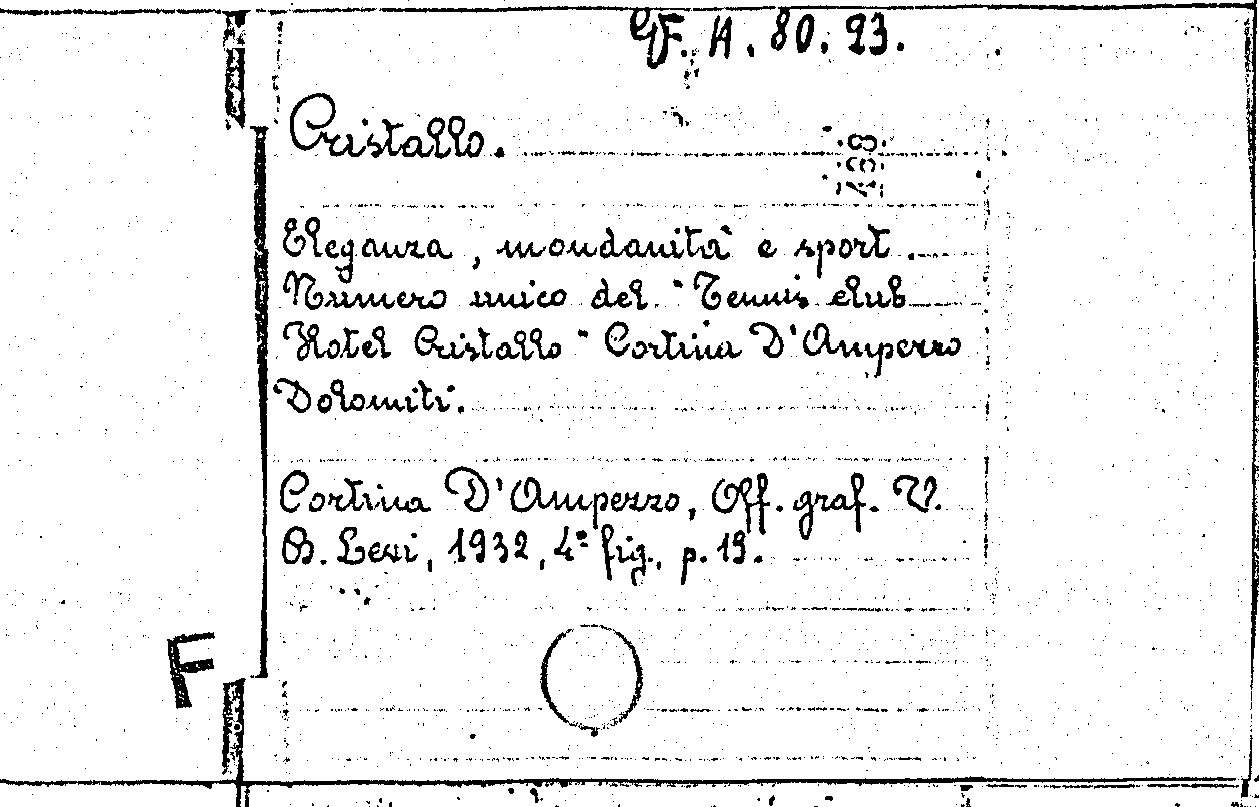 GF. A. 80. 93.
Cristallo.
Eleganza, mondanità e sport.
Numero unico del "Tennis club
Hotel Cristallo" Cortina D'Ampezzo
Dolomiti.
Cortina D'Ampezzo, Off. graf. V.
B. Levi, 1932, 4º fig., p. 19.
F